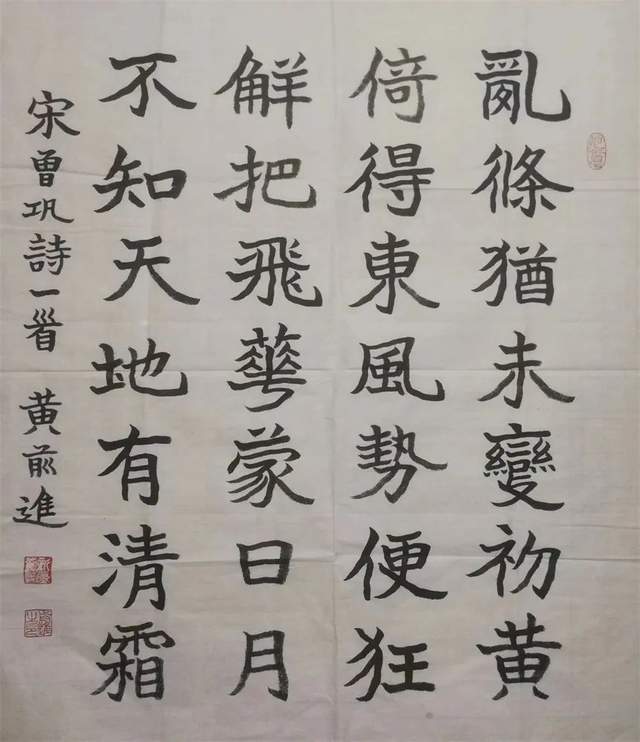 亂條猶未變初黃
倚得東風勢便狂
觧把飛華蒙日月
不知天地有清霜
宋曾巩詩一首 黄前進